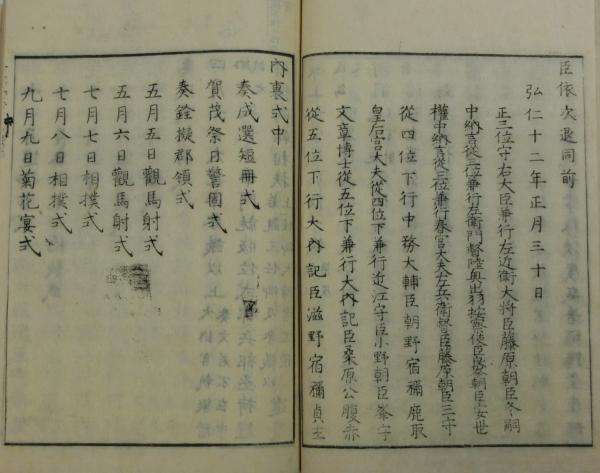 臣依次退同前
弘仁十二年正月三十日
正三位守右大臣兼行左近衛大将臣藤原朝臣冬嗣
中納言從三位兼行左衛門督陸奥出羽按察使臣良岑朝臣安世
權中納言從三位兼行春宮大夫左兵衛督臣藤原朝臣三守
從四位下行中務大輔臣朝野宿禰鹿取
皇后宮大夫從四位下兼行近江守臣小野朝臣岑守
文章博士從五位下兼行大内記臣桑原公腹赤
從五位下行大内記臣滋野宿禰貞主
内裏式中
奏成選短冊式
賀茂祭日警固式
奏銓擬郡領式
五月五日觀馬射式
五月六日觀馬射式
七月七日相撲式
七月八日相撲式
九月九日菊花宴式